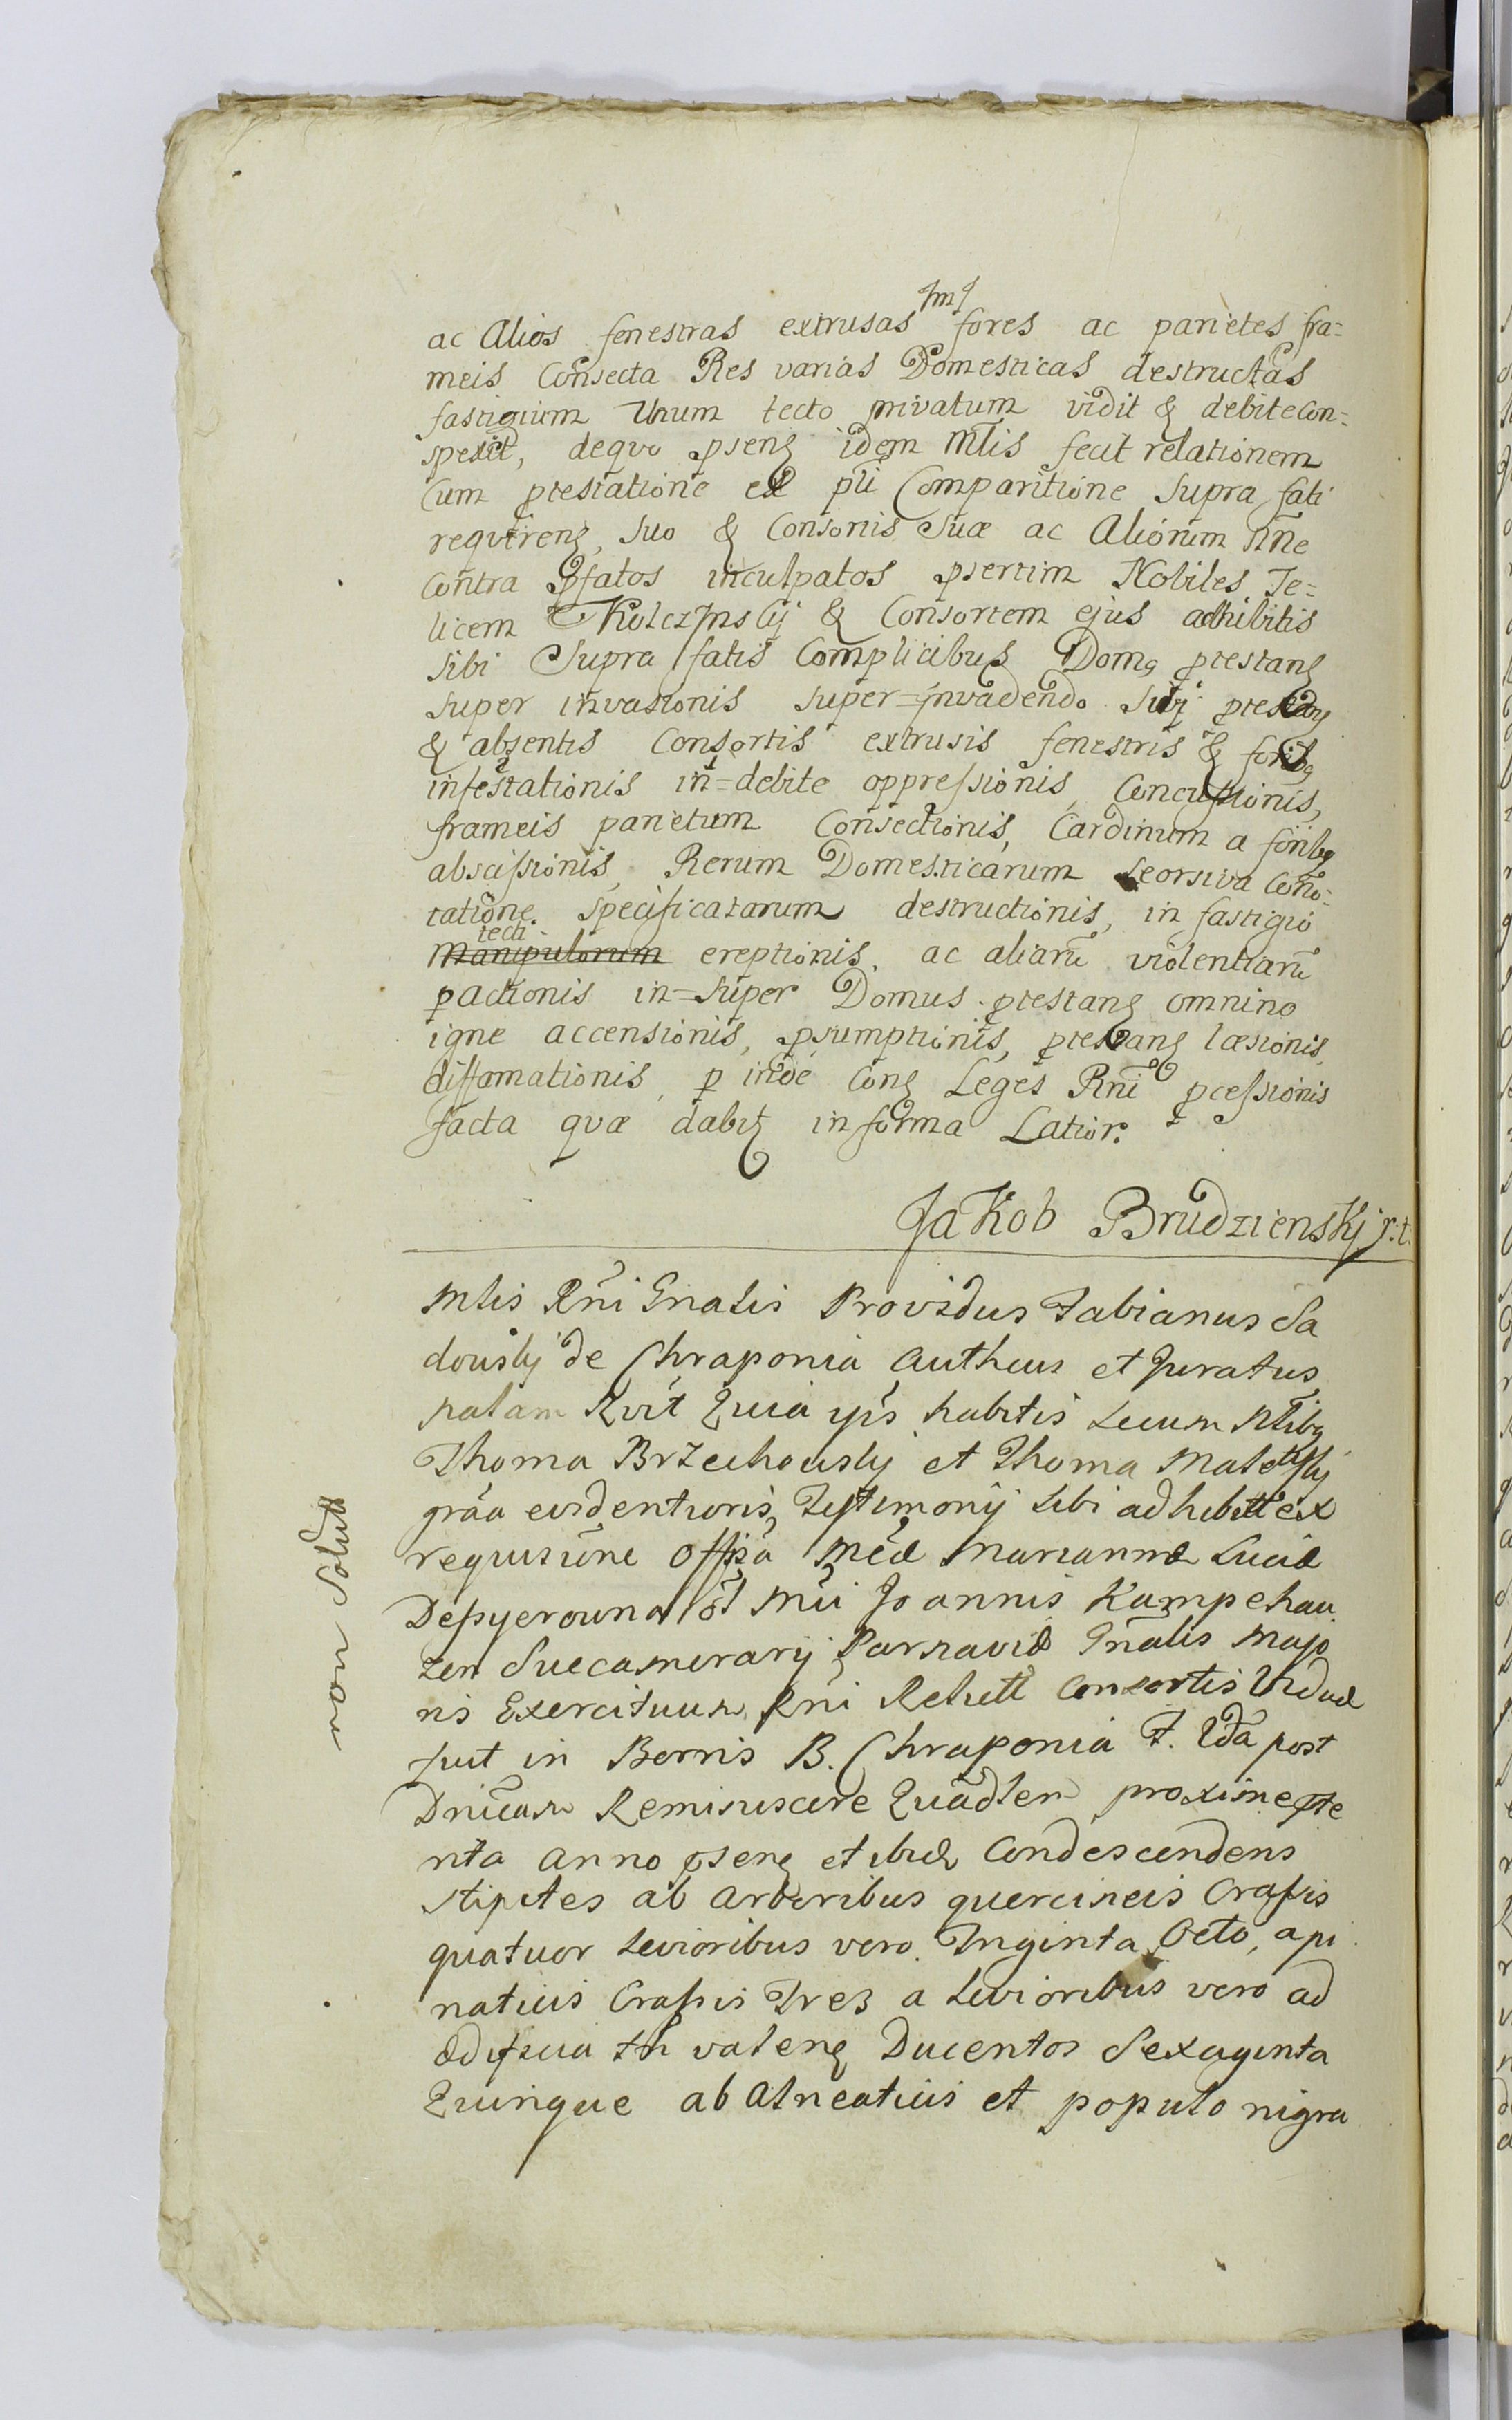 ac Alios fenestras extrusas fores ac parietes fra=
meis Consecta Res varias Domesticas destructas
fastigium Unum tecto privatum vidit & debite con=
spexit, dequo psens idem Mtlis fecit relationem
Cum ptestatione ex pti Comparitione Supra fati
requirens, suo & Consortis Suæ ac Aliorum nne
contra pfatos inculpatos psertim Nobiles Fe=
licem Kolczynskij & Consortem ejus adhibitis
sibi Supra fatis Complicibus Doms ptestans
super invasionis super=invadendo sibi ptestans
& absentis Consortis extrusis fenestris & foribs
infestationis in=debite oppressionis, Concussionis,
frameis parietum Consectionis, Cardinum a foribs
abscissionis, Rerum Domesticarum seorsiva Cono=
tatione. Specificatarum destructionis, in fastigio
tecti
Manipulorum ereptionis, ac aliarū violentiarū
pactionis in=super Domus ptestans omnino
igne accensionis, psumptionis, ptestans læsionis
diffamationis, p inde cons Leges Rni pcessionis
facta quæ dabit in forma Latior.
JaKob Brudzienskj r.t.
Mlis Rni Gnalis Providus Fabianus Sa
douskj de Chraponia Autheus et Juratus
palam Rvit Quia ipse habitis Secum Ntlibs
Thoma Brzechouskj et Thoma
grãa evidentioris Testimonij Sibi adhibitt ex
requisiōne Offsa Mcæ Mariannæ Luciæ
ol Mci Joannis Kampehau
zen Succamerarij Parnaviæ Gnalis Majo
ris Exercituum Rni Relictt Consortis Viduæ
fuit in Bonis B. Chraponia F. 2da post
Dnicam Reminiscere Quadlem proxime pte
rita anno psens et ibidem Condescendens
stipites ab arboribus quercineis Crassis
quatuor levioribus vero Triginta Octo, a pi
naticis Crassis Tres a levioribus vero ad
ædificia valens Ducentos Sexaginta
Quinque ab Alneaticis et populo nigra
non Solutt